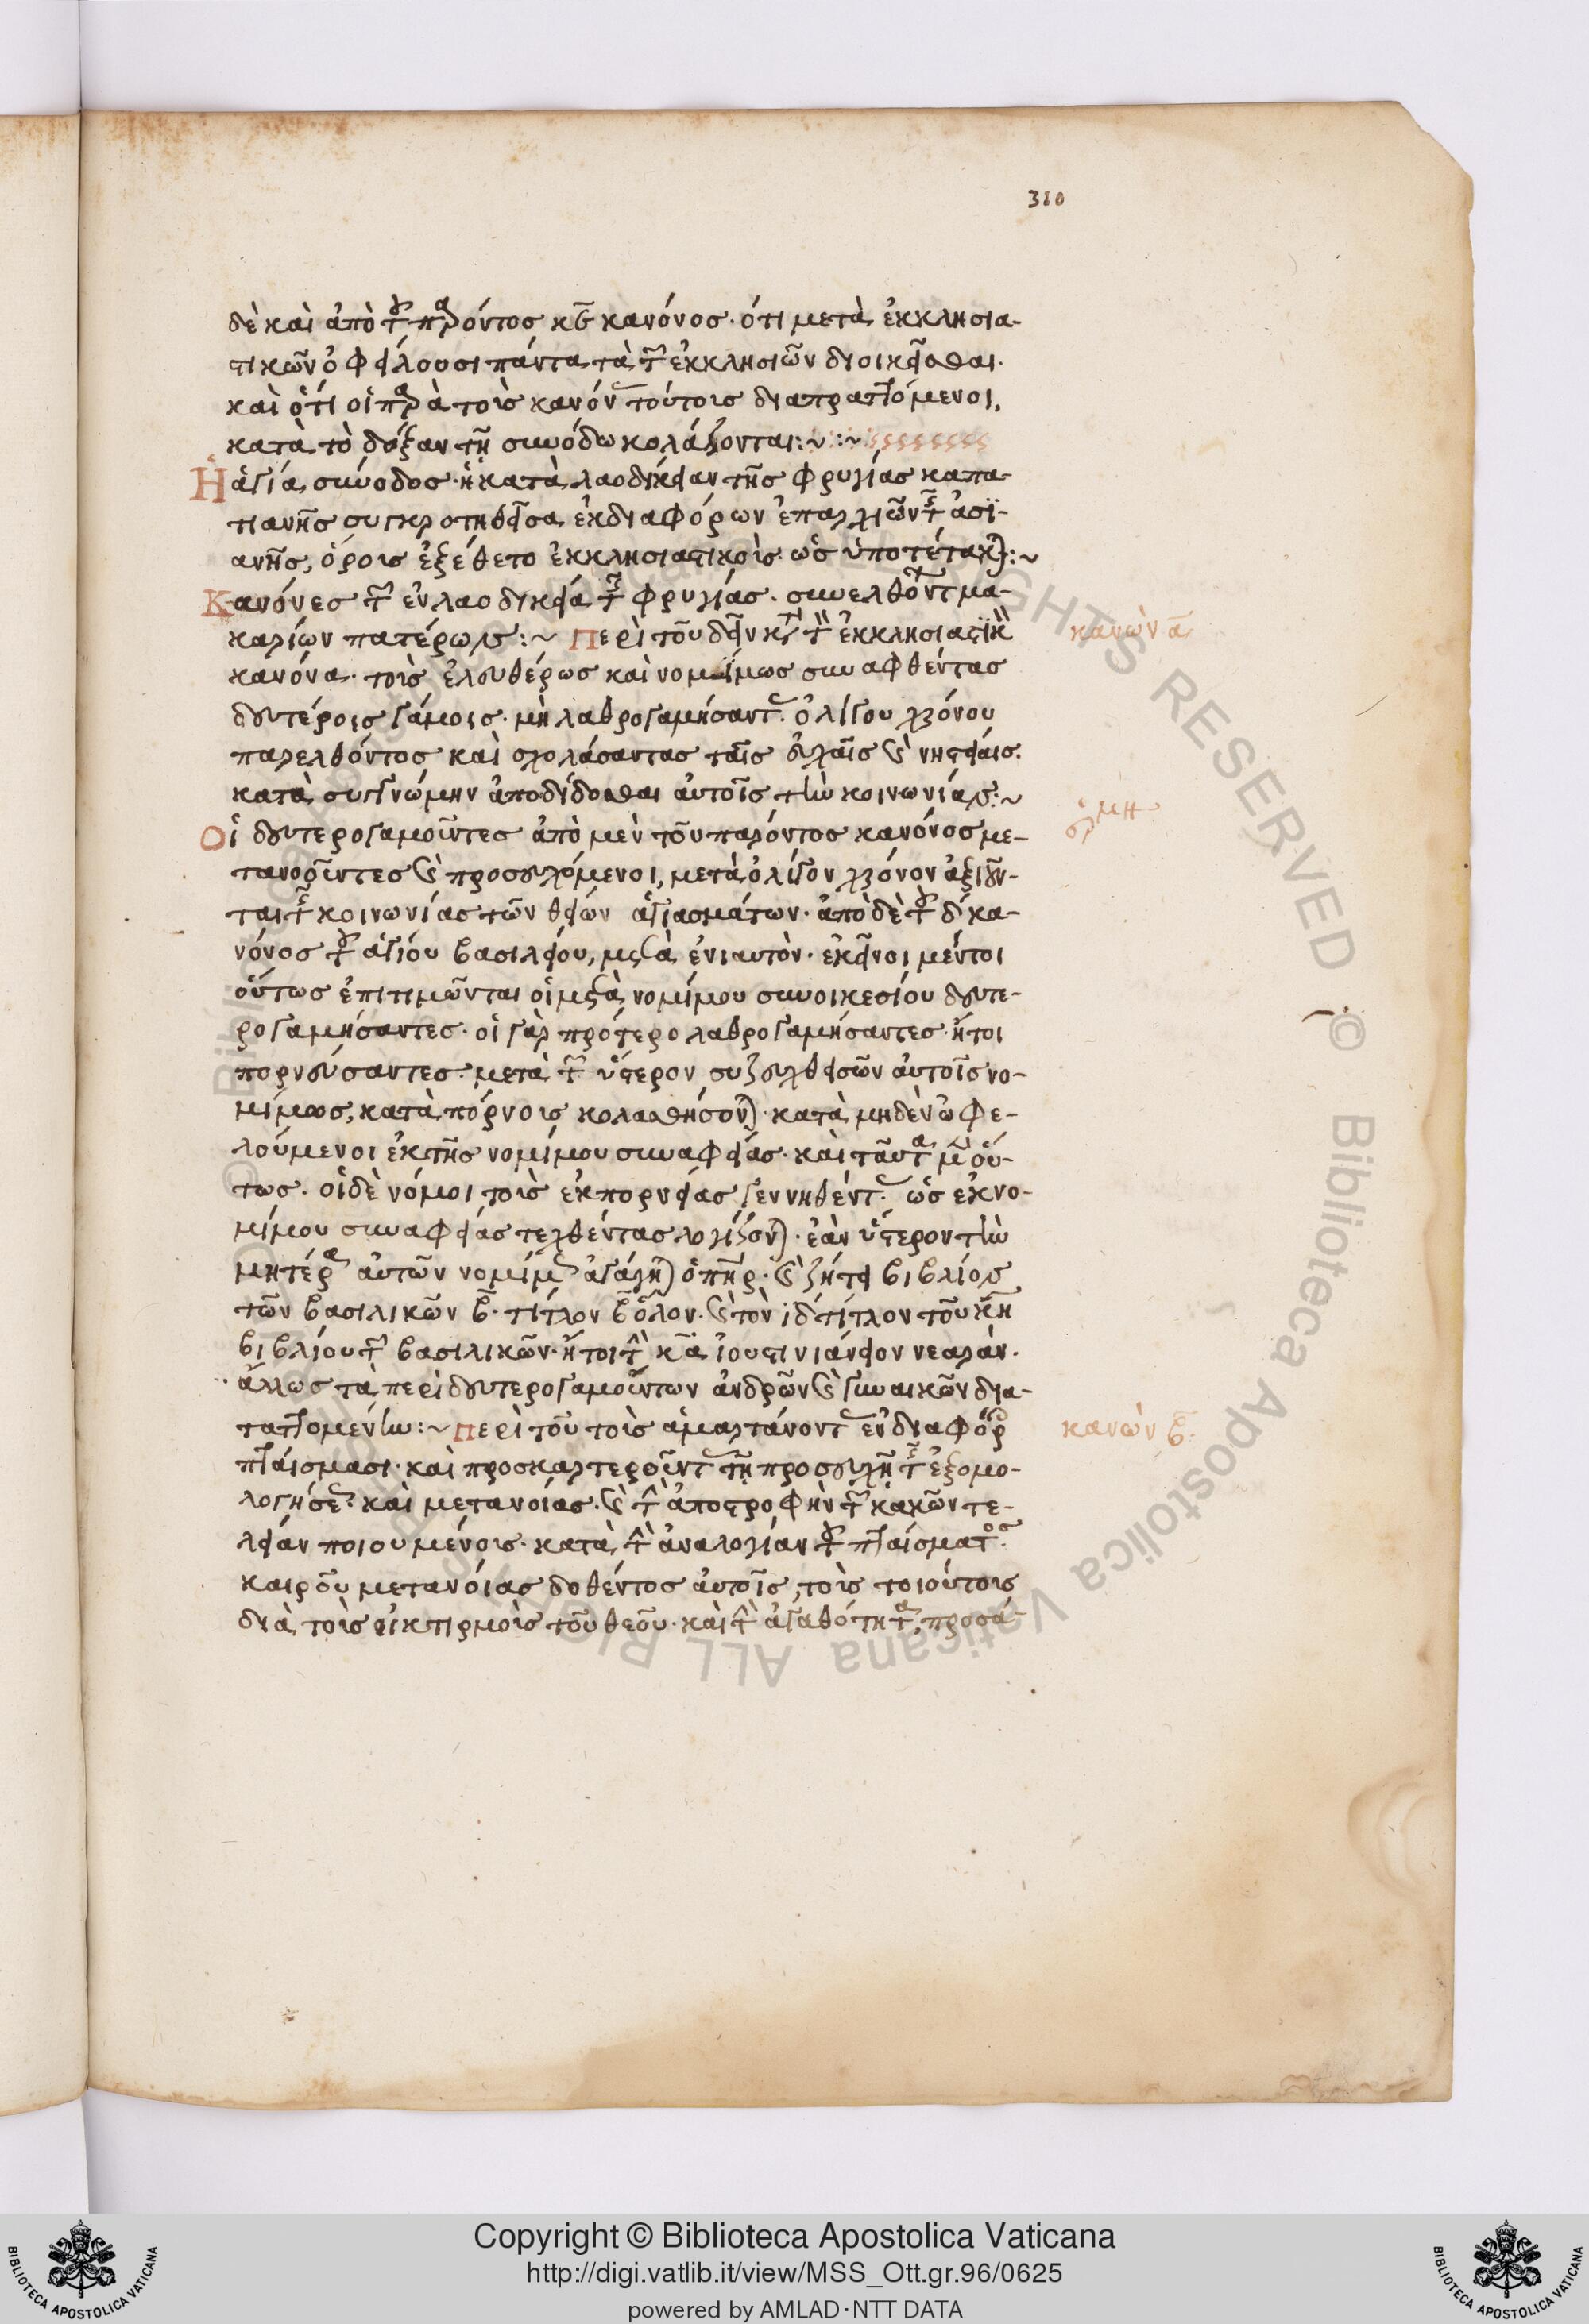 310
δὲ καὶ ἀπὸ τοῦ παρόντος κϛ κανόνος· ὅτι μετὰ ἐκκλησια-
στικῶν ὀφείλουσι πάντα τὰ τῶν ἐκκλησιῶν διοικεῖσθαι·
καὶ ὅτι οἱ παρὰ τοὺς κανόνας τούτους διαπραττόμενοι,
κατὰ τὸ δόξαν τῇ συνόδω κολάζονται:~ :~
Ἡ ἁγία σύνοδος· ἡ κατὰ λαοδίκειαν τῆς φρυγίας καπα-
τιανῆς συγκροτηθεῖσα ἐκ διαφόρων ἐπαρχιῶν τῆς ἀσϊ-
ανῆς, ὅρους ἐξέθετο ἐκκλησιαστικοὺς· ὡς ὑποτέτακται:~
Κανόνες τῶν ἐν λαοδικεία τῆς φρυγίας· συνελθόντων μα-
καρίων πατέρων:~ Περὶ τοῦ δεῖν κατὰ τὸν ἐκκλησιαστικὸν
κανὼν α
κανόνα· τοὺς ἐλευθέρως καὶ νομίμως συναφθέντας
δευτέροις γάμοις· μὴ λαθρογαμήσαντας· ὀλίγου χρόνου
παρελθόντος καὶ σχολάσαντας ταῖς εὐχαῖς καὶ νηστείαις·
κατὰ συγγνώμην ἀποδίδοσθαι αὐτοῖς τὴν κοινωνίαν:~
Οἱ δευτερογαμοῦντες ἀπὸ μὲν τοῦ παρόντος κανόνος με-
τανοοῦντες καὶ προσευχόμενοι, μετὰ ὀλίγον χρόνον ἀξιοῦν-
ται τῆς κοινωνίας τῶν θείων ἁγιασμάτων· ἀπὸ δὲ τοῦ δ κα-
νόνος τοῦ ἁγίου βασιλείου, μετὰ ἐνιαυτὸν· ἐκεῖνοι μέντοι
οὕτως ἐπιτιμῶνται οἱ μετὰ νομίμου συνοικεσίου δευτε-
ρογαμήσαντες· οἱ γὰρ πρότερο λαθρογαμήσαντες· ἤτοι
πορνεύσαντες· μετὰ τῶν ὕστερον συζευχθεισῶν αὐτοῖς νο-
μίμως, κατὰ πόρνους κολασθήσονται· κατὰ μηδὲν ὠφε-
λούμενοι ἐκ τῆς νομίμου συναφείας· καὶ ταῦτα μὲν οὕ-
τως· οἱ δὲ νόμοι τοὺς ἐκ πορνείας γεννηθέντας· ὡς ἐκ νο-
μίμου συναφείας τεχθέντας λογίζονται· ἐὰν ὕστερον τὴν
μητέρα αὐτῶν νομίμως ἀγάγηται ὁ πατήρ· καὶ ζήτει βιβλίον
τῶν βασιλικῶν β· τίτλον β ὅλον· καὶ τὸν ιδ τίτλον τοῦ κη
βιβλίου τῶν βασιλικῶν· ἤτοι τὴν κα ἰουστινιάνειον νεαρὰν·
ἄλλως τὰ περὶ δευτερογαμούντων ἀνδρῶν καὶ γυναικῶν δια-
ταττομένην:~ Περὶ τοῦ τοὺς ἁμαρτάνοντας ἐν διαφόροις
κανὼν β·
πταίσμασι· καὶ προσκαρτεροῦντας τῇ προσευχῇ τῆς ἐξομο-
λογήσεως καὶ μετανοίας· καὶ τὴν ἀποστροφὴν τῶν κακῶν τε-
λείαν ποιουμένους· κατὰ τὴν ἀναλογίαν τοῦ πταίσματος·
καιροῦ μετανοίας δοθέντος αὐτοῖς, τοὺς τοιούτους
διὰ τοὺς οἰκτιρμοὺς τοῦ θεοῦ· καὶ τὴν ἀγαθότητα, προσά-
© Biblioteca Apostolica Vaticana ALL RIGHTS RESERVED
Copyright © Biblioteca Apostolica Vaticana
http://digi.vatlib.it/view/MSS_Ott.gr.96/0625
powered by AMLAD·NTT DATA
BIBLIOTECA APOSTOLICA VATICANA
BIBLIOTECA APOSTOLICA VATICANA